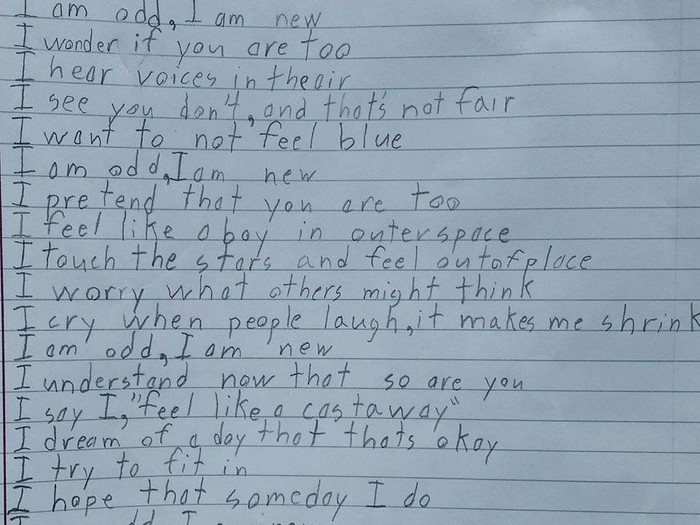 I am odd, I am new
I wonder if you are too
I hear voices in theair
I see you don't, and that's not fair
I want to not feel blue
I am odd, I am new
I pretend that you are too
I feel like a boy in outerspace
I touch the stars and feel outofplace
I worry what others might think
I cry when people laugh, it makes me shrink
I am odd, I am new
I understand now that so are you
I say I, "feel like a castaway"
I dream of a day that thats okay
I try to fit in
I hope that someday I do